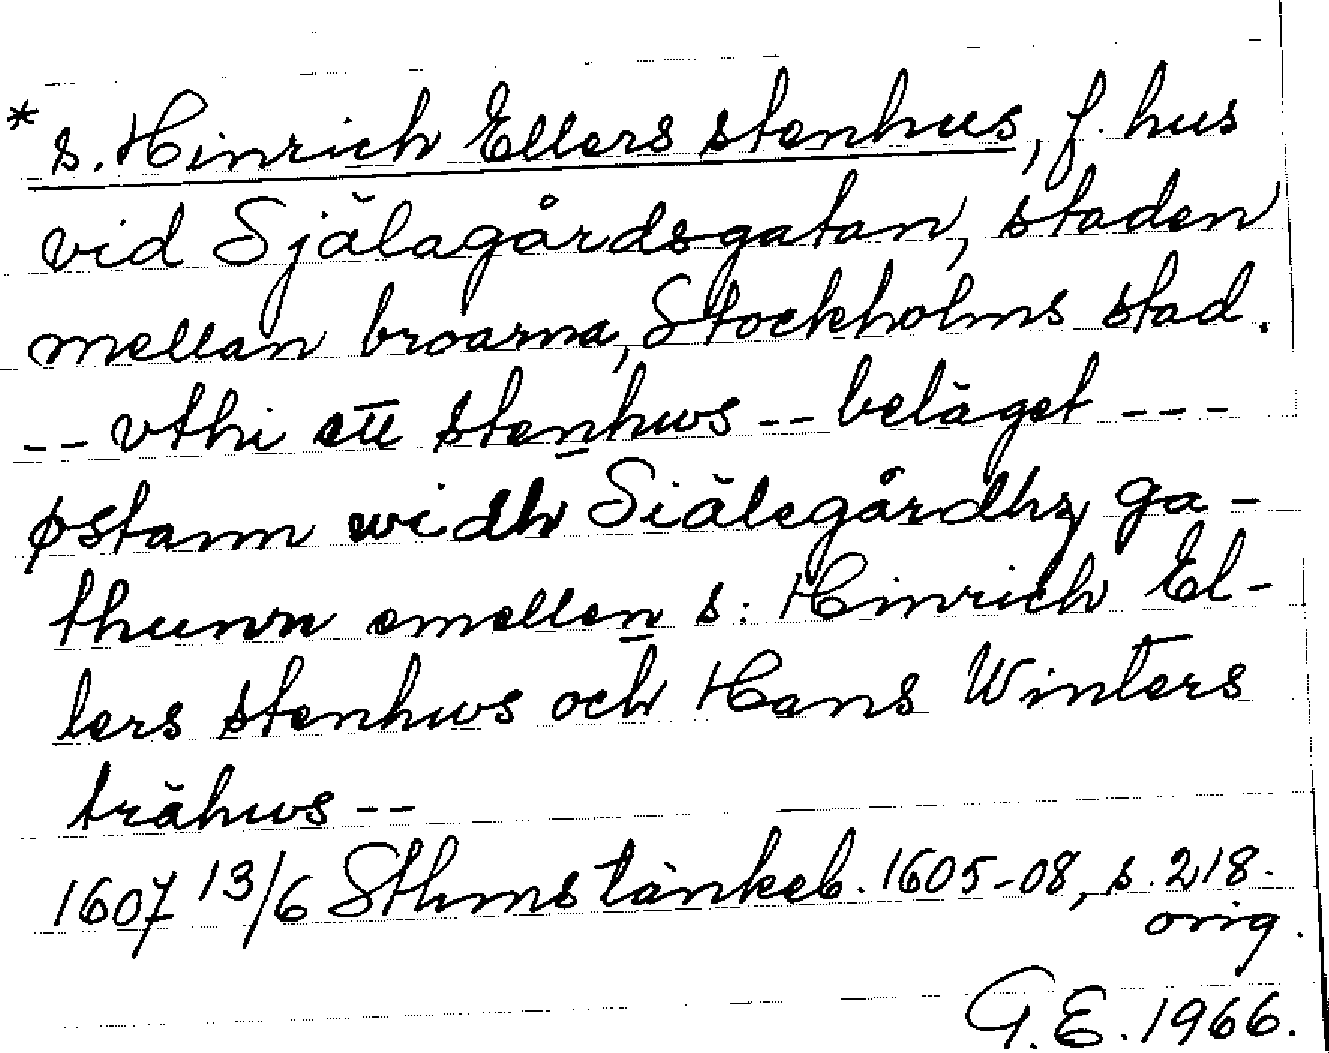 * s. Hinrich Ellers stenhus, f. hus
vid Själagårdsgatan, staden
mellan broarna, Stockholms stad.
-- vthi ett stenhws -- beläget ---
østann widh Siälegårdhz ga-
thunn emellen s. Hinrich El-
lers stenhws och Hans Winters
trähws --
1607 13/6 Sthms tänkeb. 1605-08, s. 218.
orig.
G.E. 1966.